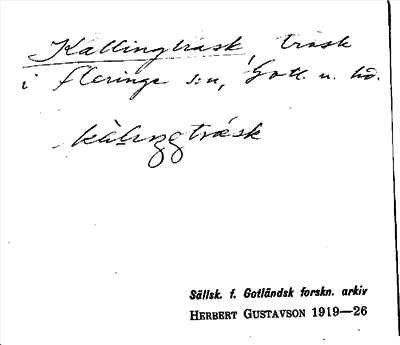 Kallingträsk, träsk
i Fleringe s:n, Gotl. n. hd.
kàlıŋgträsk
Sällsk. f. Gotländsk forskn. arkiv
HERBERT GUSTAVSON 1919—26